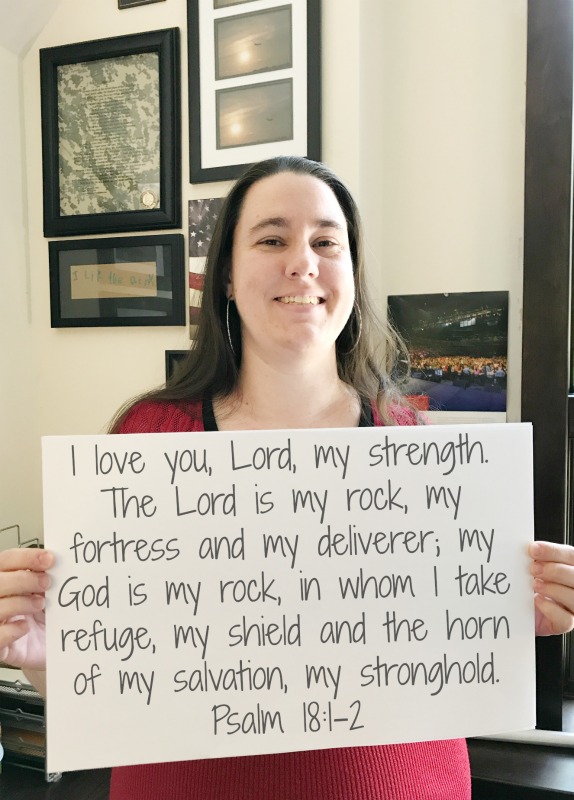 I love you, Lord, my strength.
The Lord is my rock, my
fortress and my deliverer; my
God is my rock, in whom I take
refuge, my shield and the horn
of my salvation, my stronghold.
Psalm 18:1-2